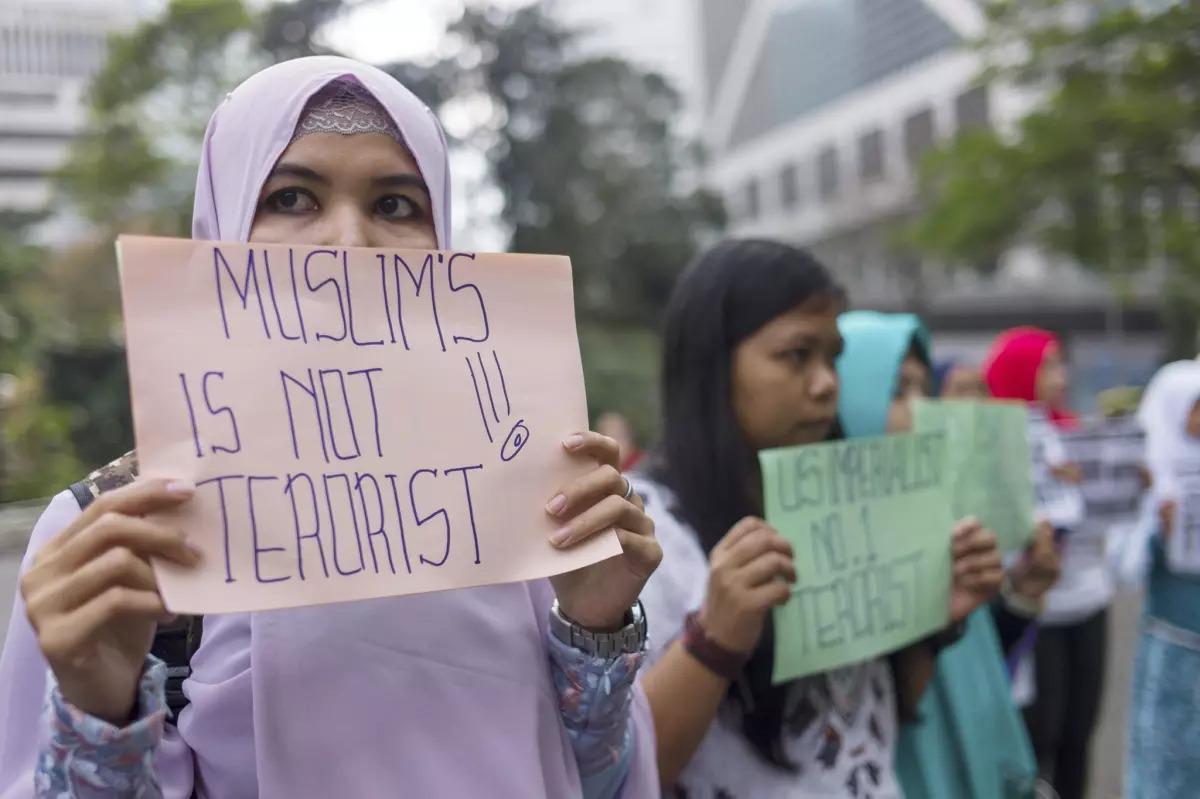 MUSLIM'S
IS NOT !!!
TERORIST
US IMPERIALIST
NO. 1
TERORIST